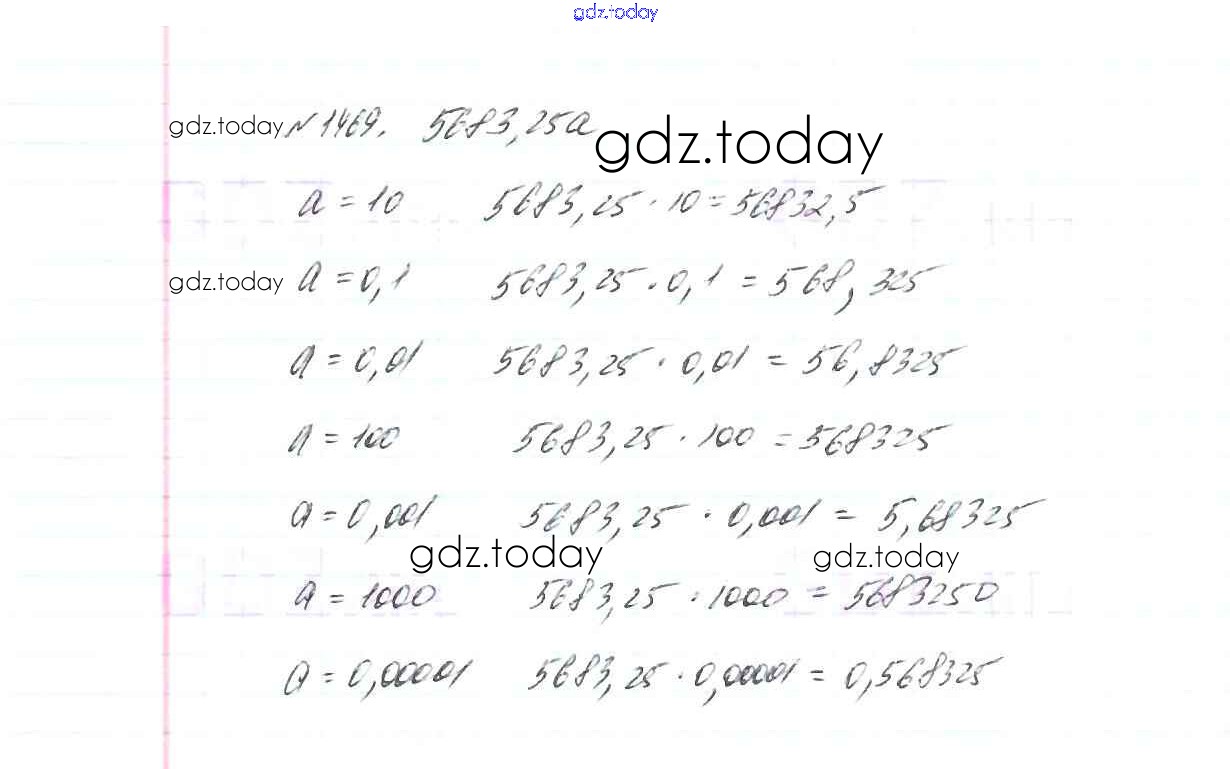 gdz.today
gdz.today № 1469. 5683,25a gdz.today
a = 10 5683,25 · 10 = 56832,5
gdz.today a = 0,1 5683,25 · 0,1 = 568,325
a = 0,01 5683,25 · 0,01 = 56,8325
a = 100 5683,25 · 100 = 568325
a = 0,001 5683,25 · 0,001 = 5,68325
gdz.today gdz.today
a = 1000 5683,25 · 1000 = 5683250
a = 0,00001 5683,25 · 0,00001 = 0,568325